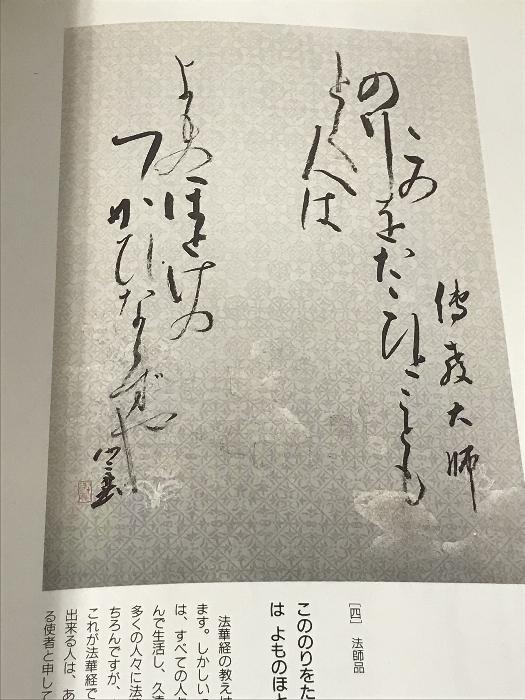 傳教大師
この
のりをたゝひとことも
とく人は
よものほとけの
つかひならずや
[四] 法師品
こののりをた
は よものほと
法華経の教えは
ます。しかしい
は、すべての人
んで生活し、久
多くの人々に法
ちろんですが、
これが法華経で
出来る人は、あ
る使者と申して